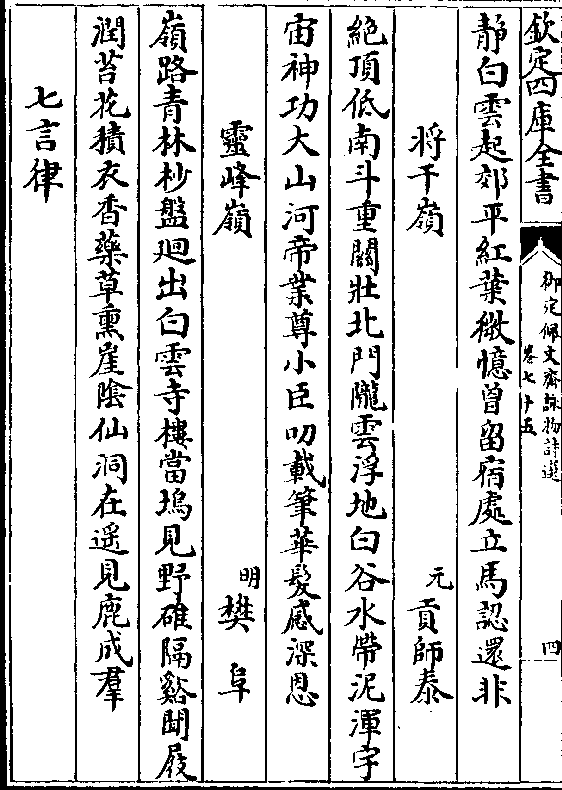 欽定四庫全書
御定佩文齋詠物詩選
卷七十五
四
静白雲起郊平紅葉微憶曾留宿處立馬認還非
将干嶺
元
貢師泰
絶頂低南斗重關壯北門隴雲浮地白谷水帶泥渾宇
宙神功大山河帝業尊小臣叨載筆華髮感深恩
靈峰嶺
明
樊阜
嶺路青林杪盤迴出白雲寺樓當塢見野碓隔谿聞屐
潤苔花積衣香藥草熏崖陰仙洞在遥見鹿成羣
七言律